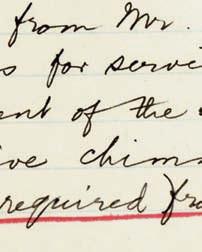 from Mr.
s for servi
ent of the
ive chims
required) fro